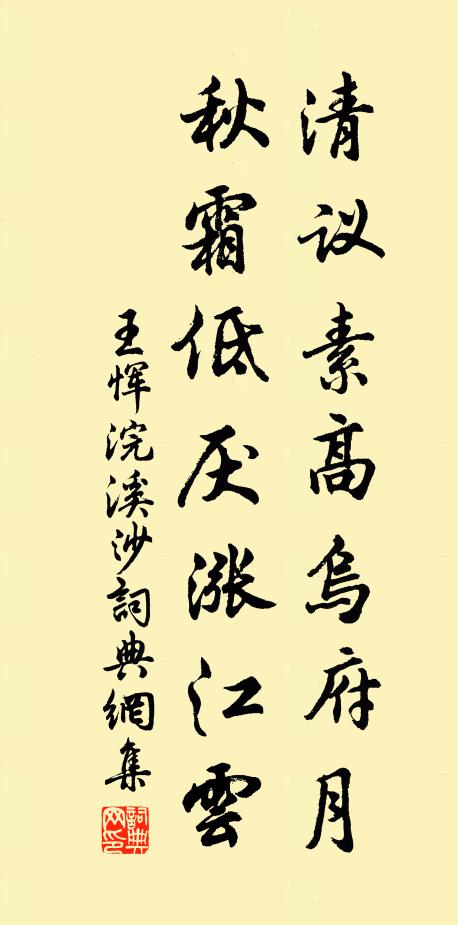 清议素高乌府月
秋霜低厌涨江雲
王恽浣溪沙詞典網集
詞典网印